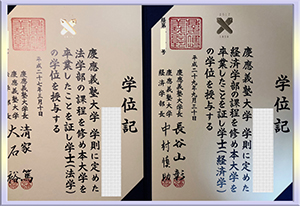 学位記
慶應義塾大学 学則に定めた
経済学部の課程を修め本大学を
卒業したことを証し学士(経済学)
の学位を授与する
平成二十九年三月
慶應義塾大学長 長谷山 彰
経済学部長 中村 慎助
学位記
慶應義塾大学 学則に定めた
法学部の課程を修め本大学を
卒業したことを証し学士(法学)
の学位を授与する
平成二十七年三月
慶應義塾大学長 清家 篤
慶應義塾大学 大石 裕